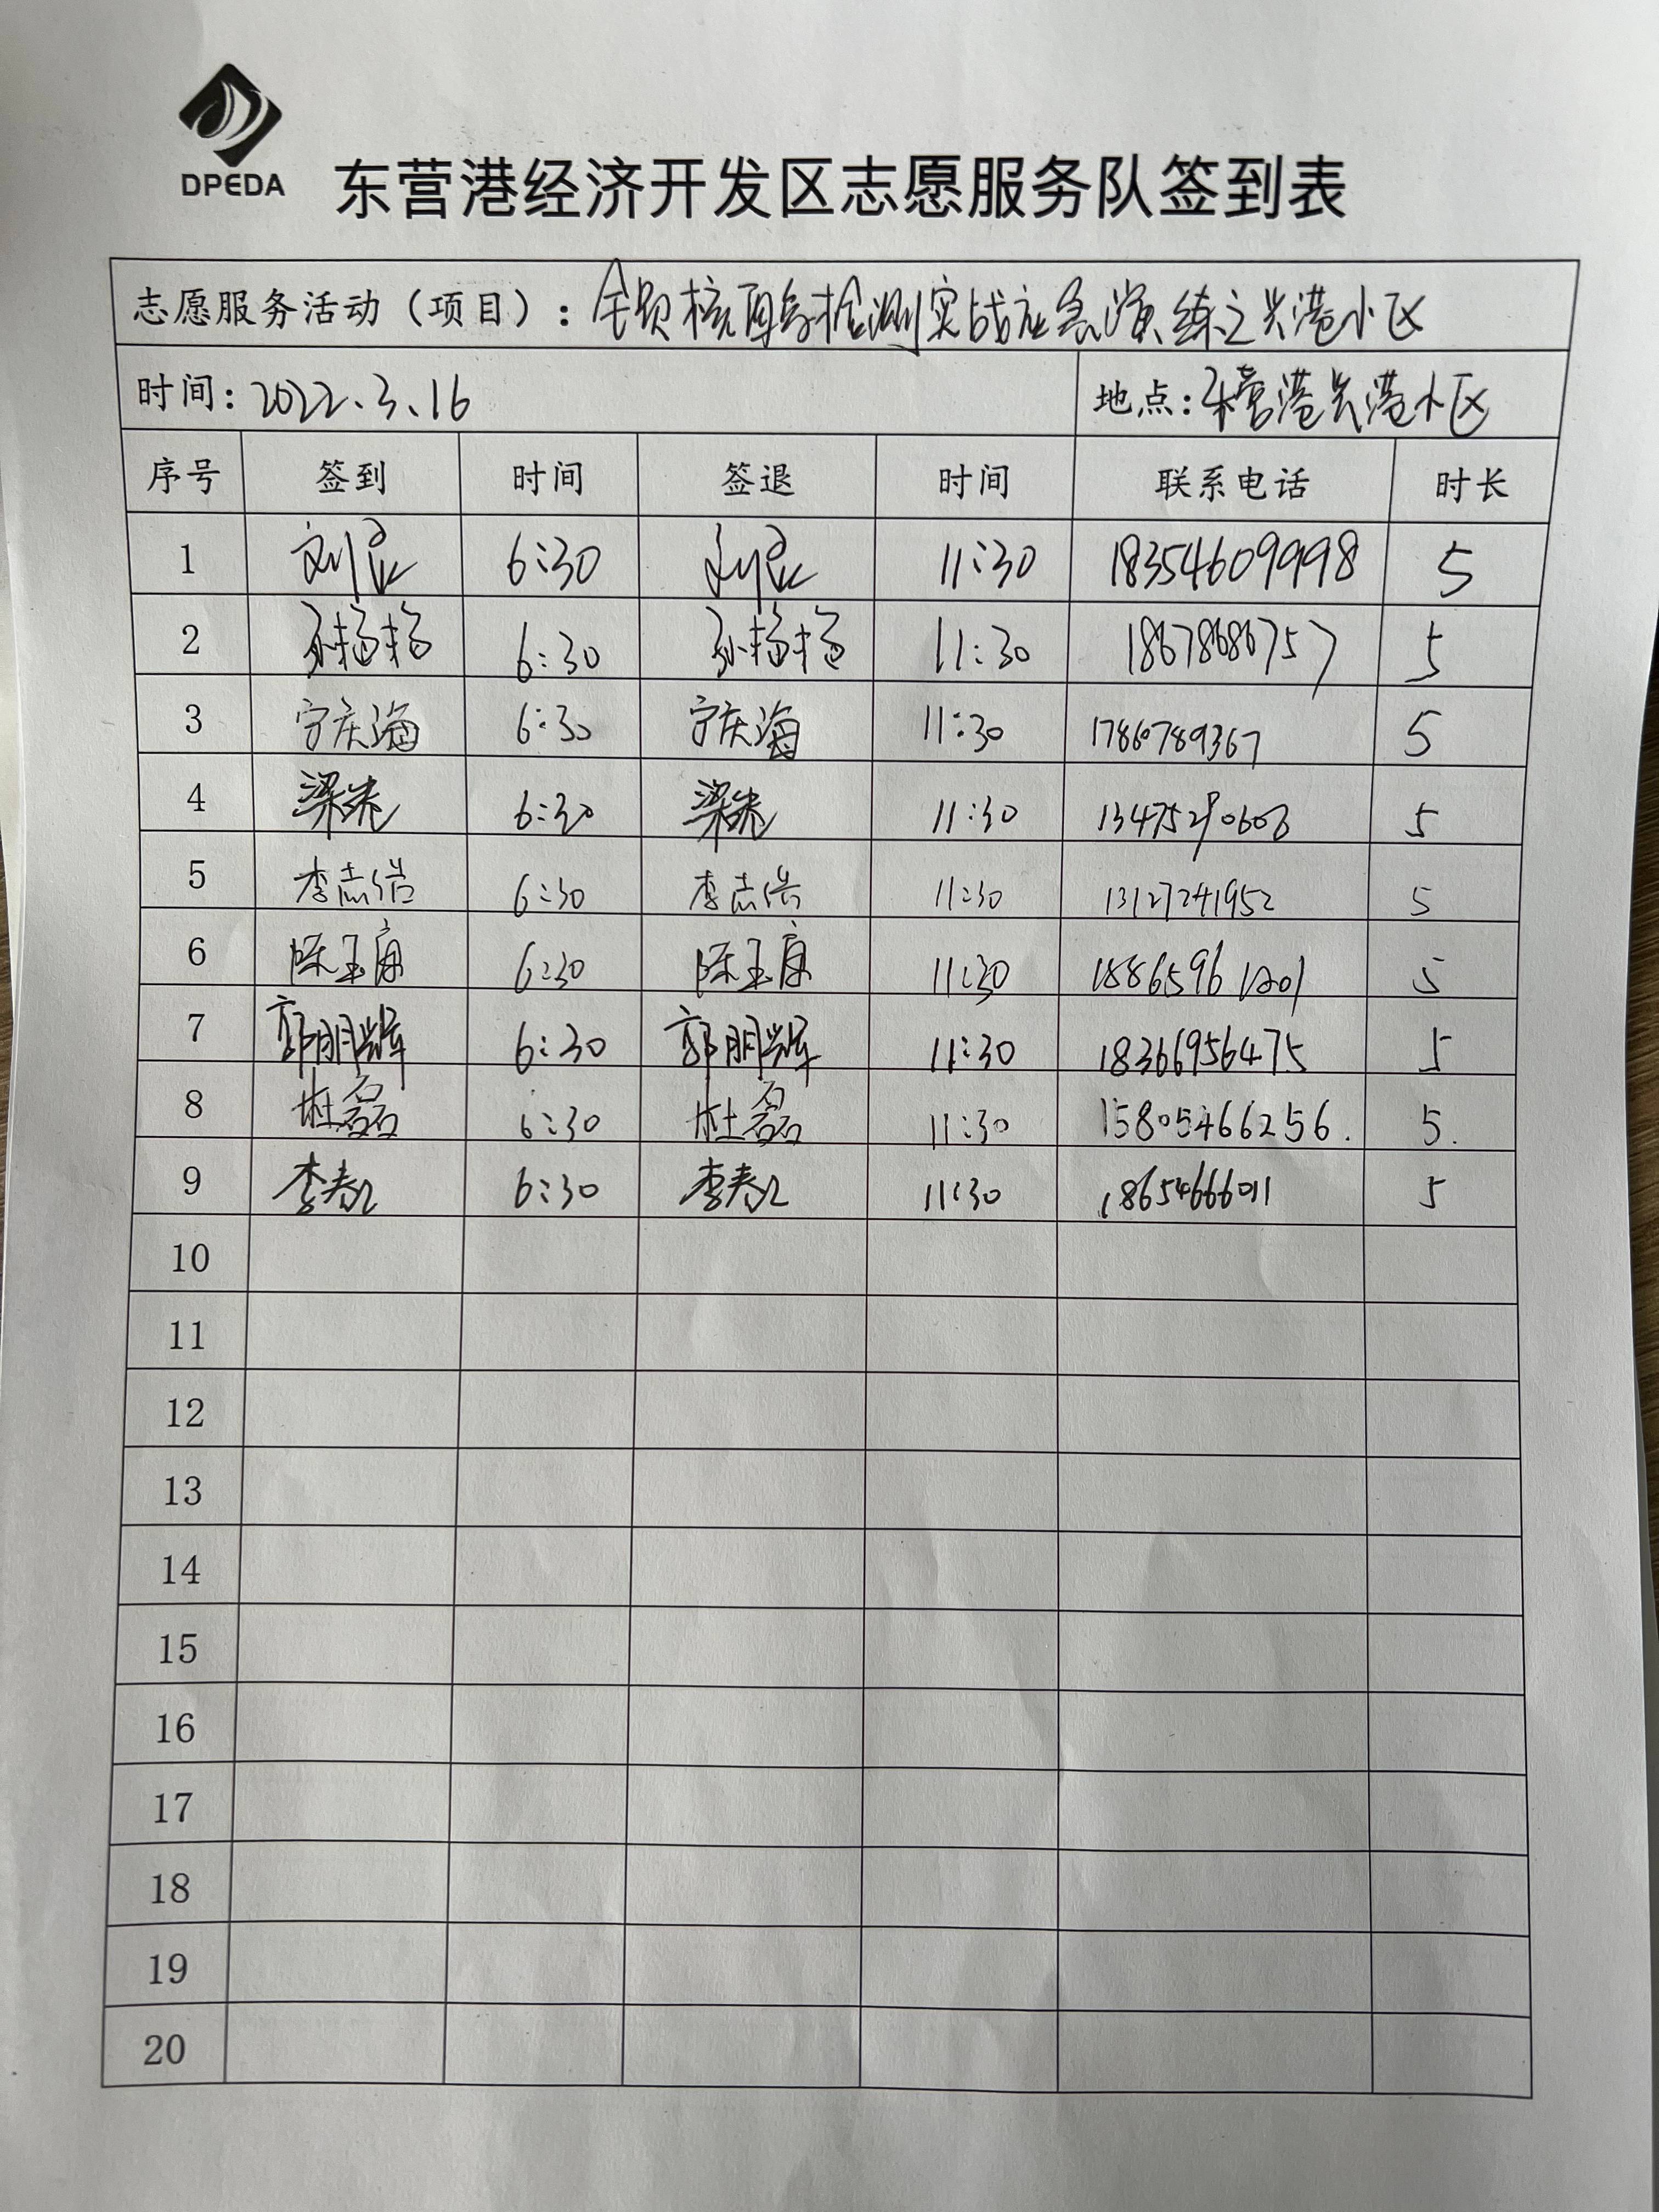 DPEDA
东营港经济开发区志愿服务队签到表
志愿服务活动（项目）：全员核酸检测实战应急演练之兴港小区
时间：2022.3.16 地点：东营港兴港小区
序号 签到 时间 签退 时间 联系电话 时长
1 6:30 11:30 18354609998 5
2 孙扬扬 6:30 孙扬扬 11:30 18678686757 5
3 宁庆海 6:30 宁庆海 11:30 17860789367 5
4 6:30 11:30 5
5 李志浩 6:30 李志浩 11:30 13127241952 5
6 陈玉康 6:30 陈玉康 11:30 18865961201 5
7 郭明辉 6:30 郭明辉 11:30 18366956475 5
8 杜磊 6:30 杜磊 11:30 15805466256. 5.
9 6:30 11:30 18654666011 5
10
11
12
13
14
15
16
17
18
19
20